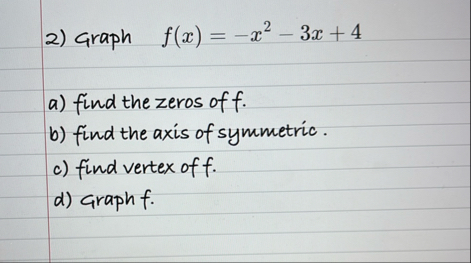 2) Graph f(x) = −x² − 3x + 4
a) find the zeros of f.
b) find the axis of symmetric.
c) find vertex of f.
d) Graph f.